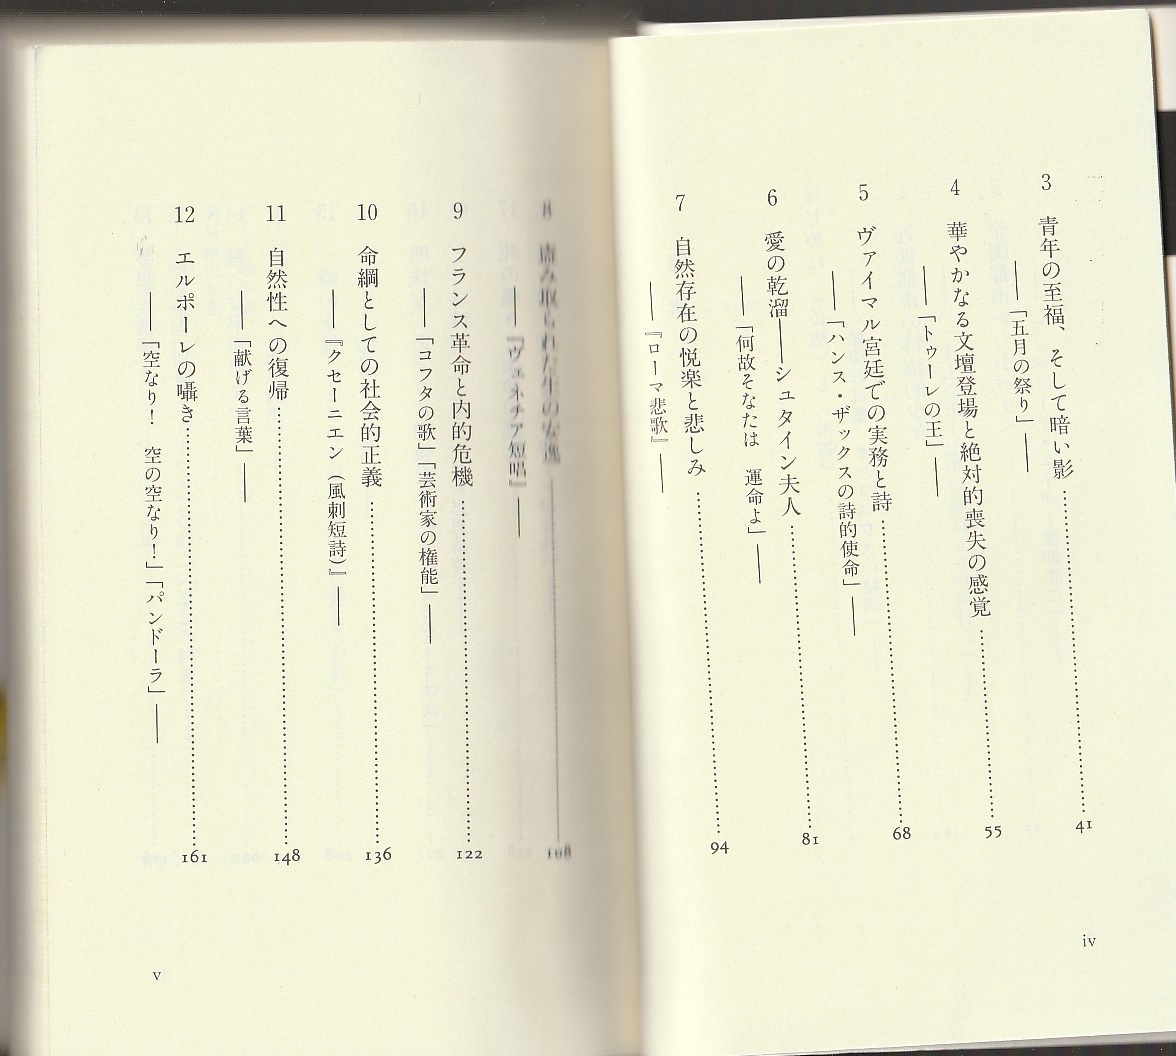 3 青年の至福、そして暗い影 41
――「五月の祭り」――
4 華やかなる文壇登場と絶対的喪失の感覚 55
――「トゥーレの王」――
5 ヴァイマル宮廷での実務と詩 68
――「ハンス・ザックスの詩的使命」――
6 愛の乾溜――シュタイン夫人 81
――「何故そなたは 運命よ」――
7 自然存在の悦楽と悲しみ 94
――『ローマ悲歌』――
iv
8 盗み取られた生の安逸 108
――『ヴェネチア短唱』――
9 フランス革命と内的危機 122
――「コフタの歌」「芸術家の権能」――
10 命綱としての社会的正義 136
――『クセーニエン（風刺短詩）』――
11 自然性への復帰 148
――「献げる言葉」――
12 エルポーレの囁き 161
――「空なり！ 空の空なり！」「パンドーラ」――
v